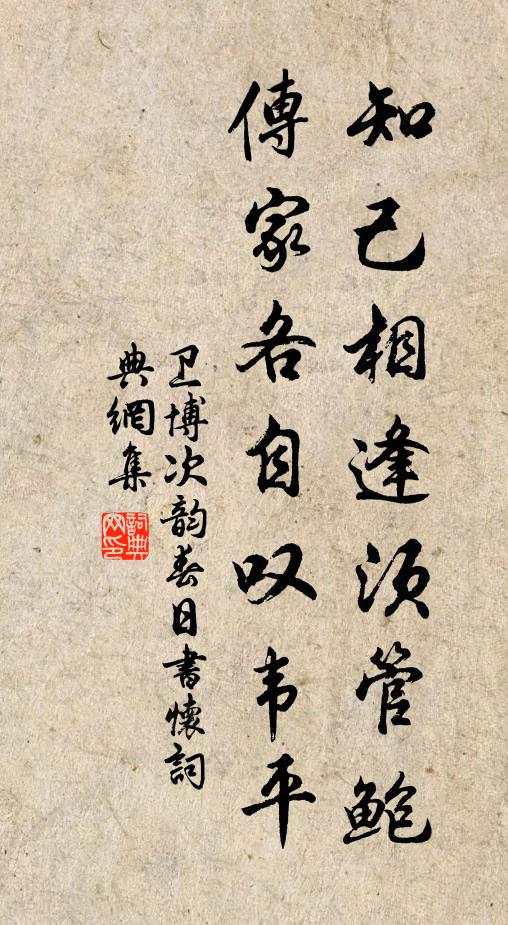 知己相逢须管鲍
傳家各自叹韦平
卫博次韵春日書懷詞
典網集
詞典网印